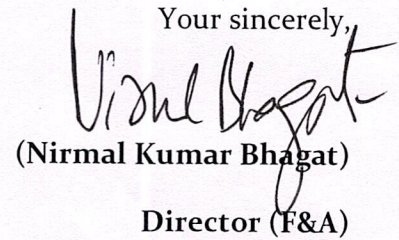 Your sincerely,
Nirmal Bhagat
(Nirmal Kumar Bhagat)
Director (F&A)